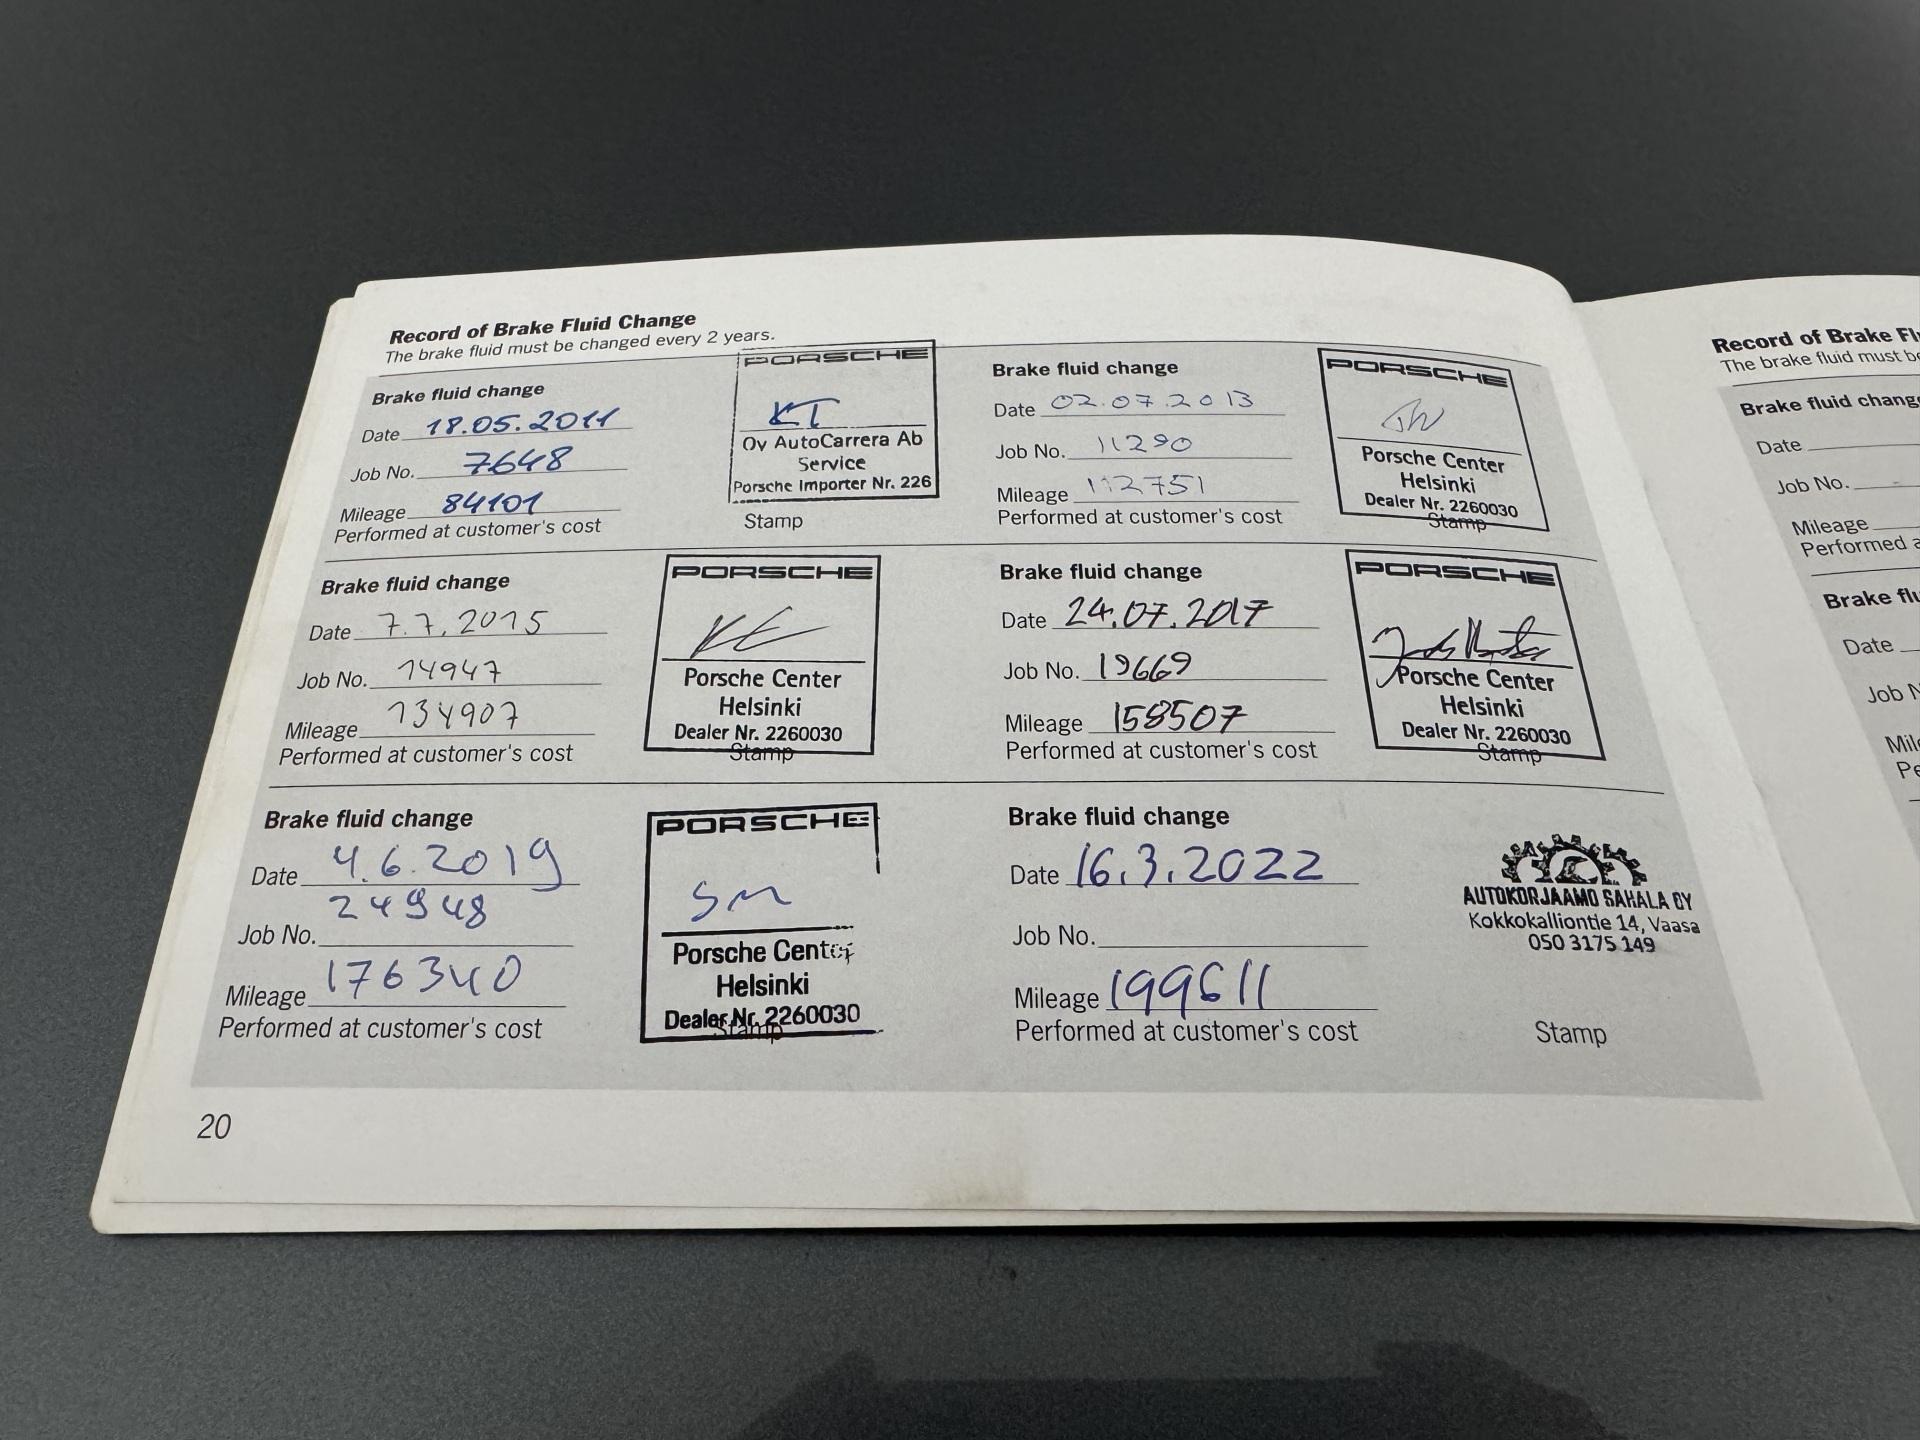 Record of Brake Fluid Change
The brake fluid must be changed every 2 years.
Brake fluid change
Date 18.05.2011
Job No. 7648
Mileage 84101
Performed at customer's cost
PORSCHE
KT
Oy AutoCarrera Ab
Service
Porsche Importer Nr. 226
Stamp
Brake fluid change
Date 02.07.2013
Job No. 11290
Mileage 112751
Performed at customer's cost
PORSCHE
Porsche Center
Helsinki
Dealer Nr. 2260030
Stamp
Brake fluid change
Date 7.7.2015
Job No. 14947
Mileage 134907
Performed at customer's cost
PORSCHE
Porsche Center
Helsinki
Dealer Nr. 2260030
Stamp
Brake fluid change
Date 24.07.2017
Job No. 19669
Mileage 158507
Performed at customer's cost
PORSCHE
Porsche Center
Helsinki
Dealer Nr. 2260030
Stamp
Brake fluid change
Date 4.6.2019
24948
Job No.
Mileage 176340
Performed at customer's cost
PORSCHE
SM
Porsche Center
Helsinki
Dealer Nr. 2260030
Stamp
Brake fluid change
Date 16.3.2022
Job No.
Mileage 199611
Performed at customer's cost
AUTOKORJAAMO SAHALA OY
Kokkokalliontie 14, Vaasa
050 3175 149
Stamp
20
Record of Brake Fl
The brake fluid must be
Brake fluid chang
Date
Job No.
Mileage
Performed a
Brake flu
Date
Job N
Mile
Pe